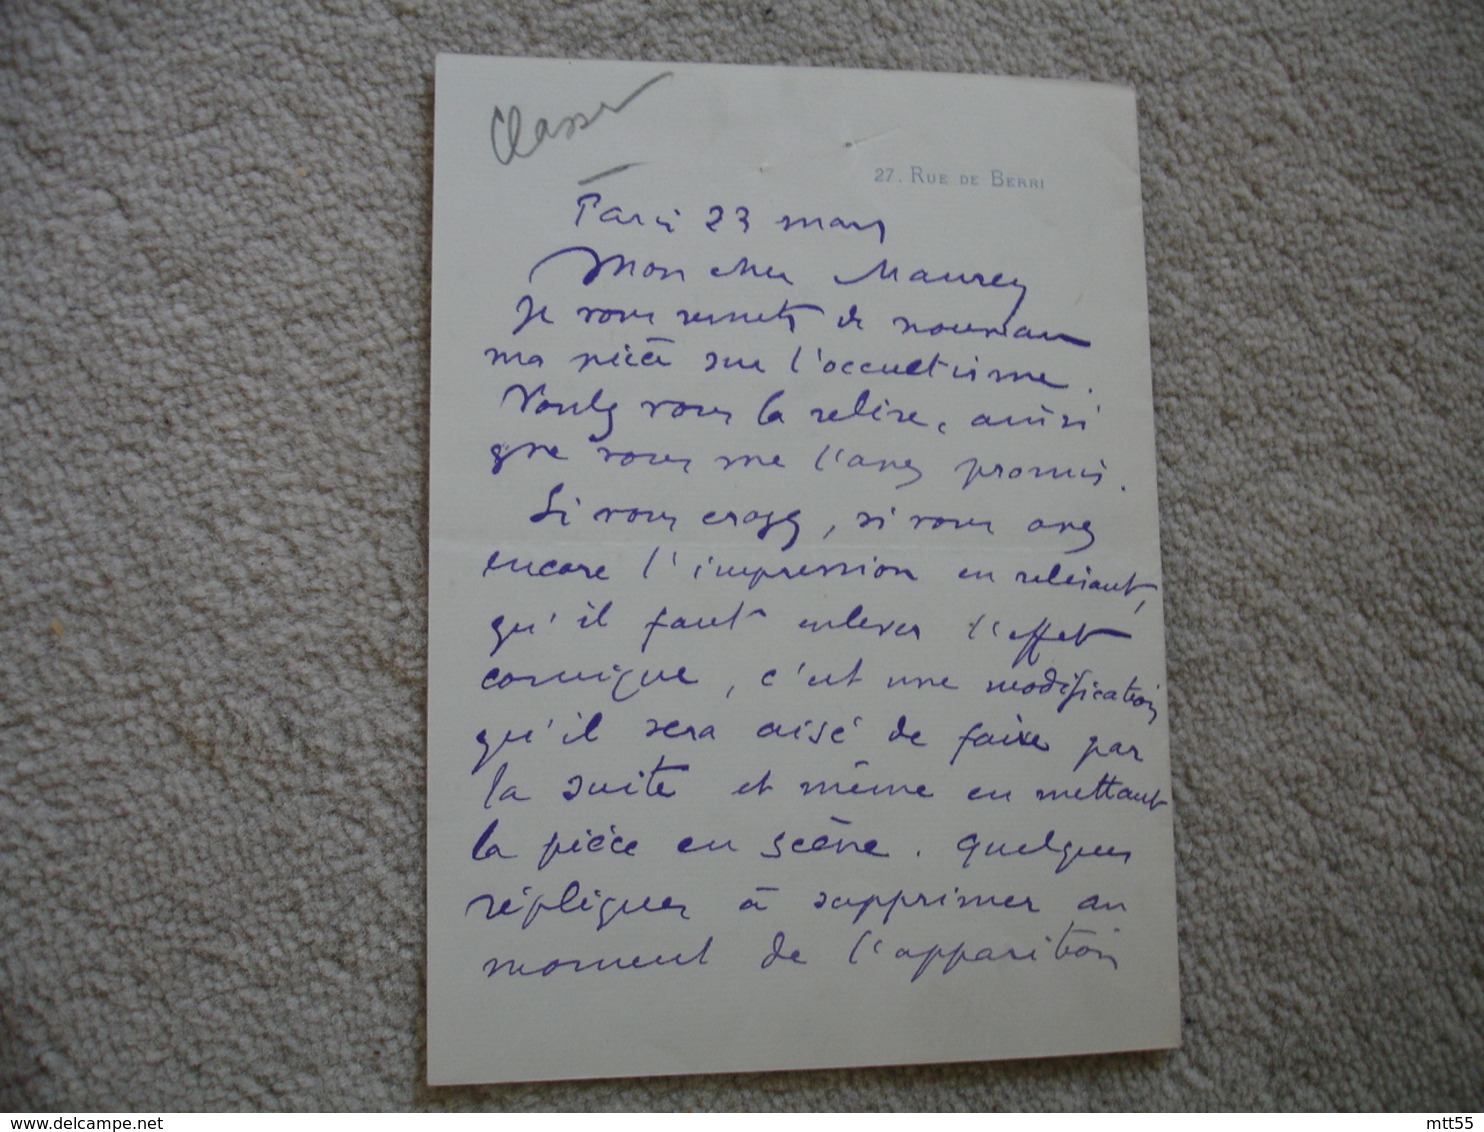 Classer
27. RUE DE BERRI
Paris 23 mars
Mon cher Maurey
Je vous remets de nouveau
ma pièce sur l'occultisme.
Voulez vous la relire, ainsi
que vous me l'avez promis.
Si vous croyez, si vous avez
encore l'impression en relisant,
qu'il faut enlever l'effet
comique, c'est une modification
qu'il sera aisé de faire par
la suite et même en mettant
la pièce en scène. Quelques
répliques à supprimer au
moment de l'apparition
delcampe.net
mtt55